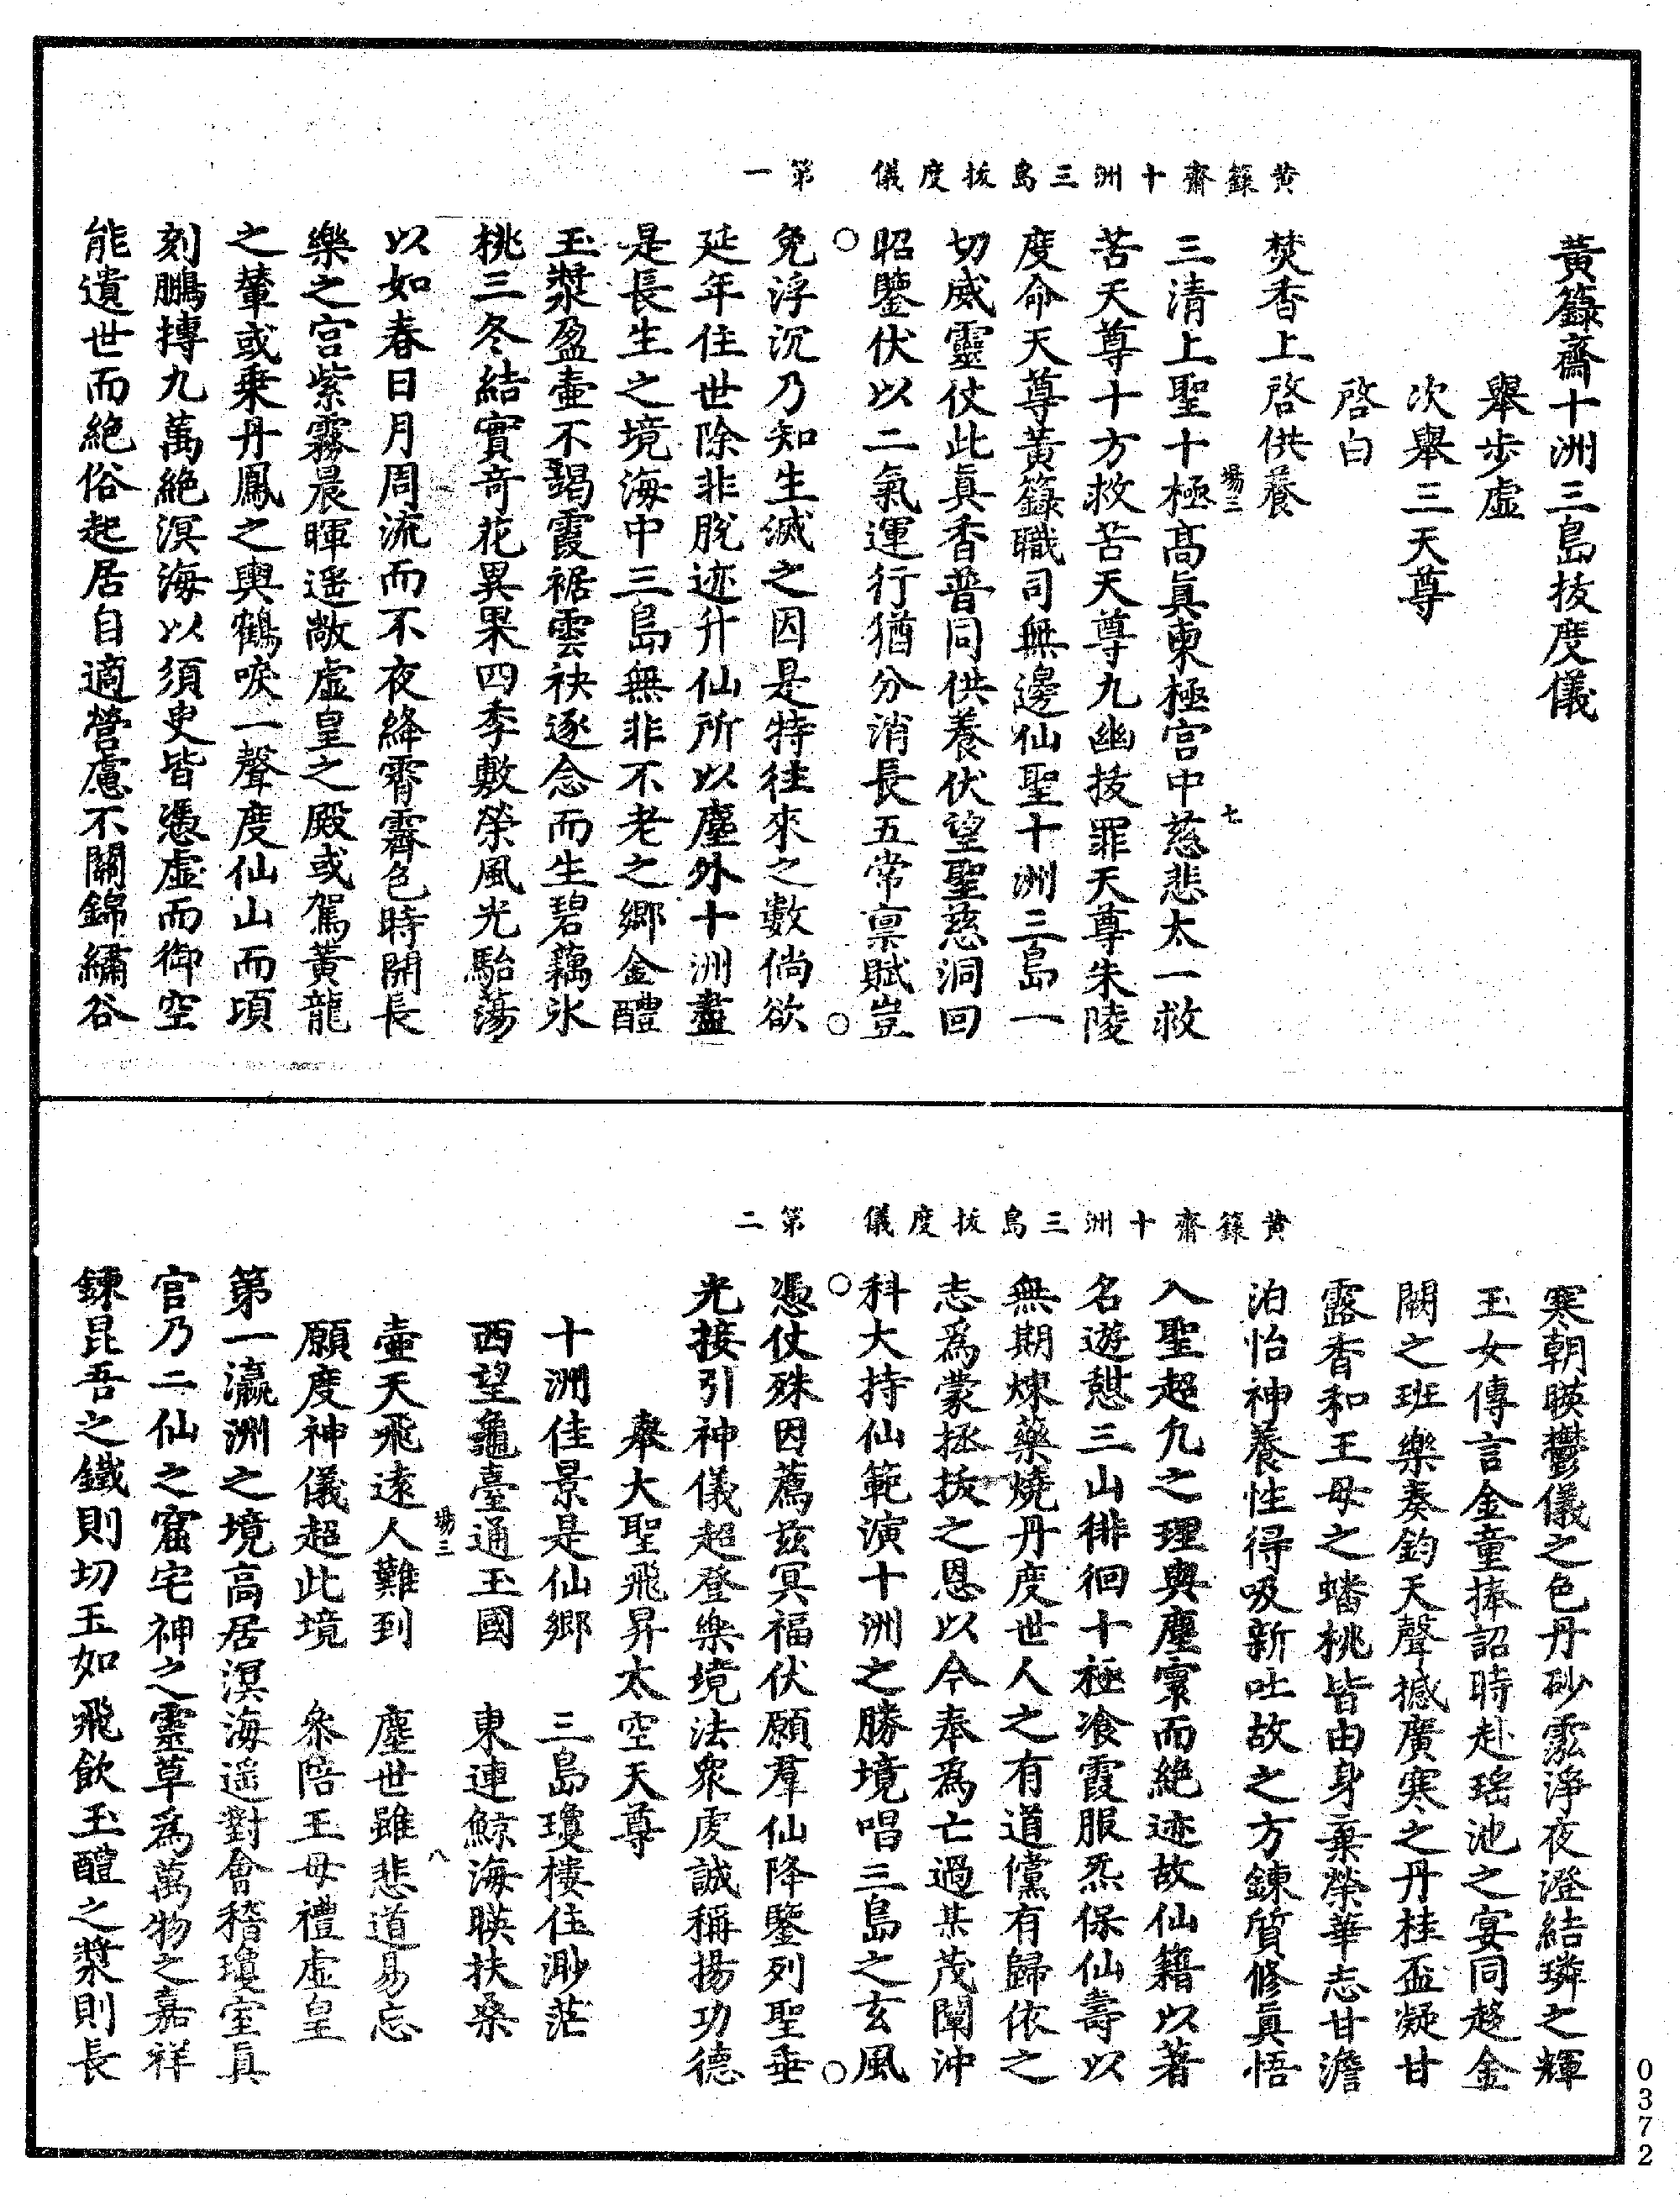 黃籙齋十洲三島拔度儀　第一
黃籙齋十洲三島拔度儀
舉步虛
次舉三天尊
啓白
焚香上啓供養
三清上聖十極髙眞東極宫中慈悲太一救
苦天尊十方救苦天尊九幽拔罪天尊朱陵
度命天尊黃籙職司無邊仙聖十洲三島一
切威靈仗此眞香普同供養伏望聖慈洞回
昭鑒伏以二氣運行猶分消長五常禀賦豈
免浮沉乃知生滅之因是特徃來之數倘欲
延年住世除非脫迹升仙所以塵外十洲盡
是長生之境海中三島無非不老之郷金醴
玉漿盈壷不竭霞裾雲袂逐念而生碧藕氷
桃三冬結實竒花異果四季敷榮風光駘蕩
以如春日月周流而不夜絳霄霽色時開長
樂之宫紫霧晨暉遥敞虛皇之殿或駕黃龍
之輦或乗丹鳳之輿鶴唳一聲度仙山而頃
刻鵬摶九萬絶溟海以須臾皆憑虛而御空
能遺世而絶俗起居自適營慮不關錦繡谷
塲三
七
黃籙齋十洲三島拔度儀　第二
寒朝暎鬱儀之色丹砂霐淨夜澄結璘之輝
玉女傳言金童捧詔時赴瑤池之宴同趍金
闕之班樂奏鈞天聲撼廣寒之丹桂盃凝甘
露香和王母之蟠桃皆由身棄榮華志甘澹
泊怡神養性得吸新吐故之方鍊質修眞悟
入聖超凢之理與塵寰而絶迹故仙籍以著
名遊憇三山徘徊十極飡霞服炁保仙壽以
無期煉藥燒丹度世人之有道儻有歸依之
志爲蒙拯拔之恩以今奉爲亡過某茂闡沖
科大持仙範演十洲之勝境唱三島之玄風
憑仗殊因薦兹冥福伏願羣仙降鑒列聖垂
光接引神儀超登樂境法衆䖍誠稱揚功德
舉大聖飛昇太空天尊
十洲佳景是仙郷　三島瓊樓住渺茫
西望龜臺通玉國　東連鯨海暎扶桑
壷天飛遠人難到　塵世雖悲道易忘
願度神儀超此境　叅陪王母禮虛皇
第一瀛洲之境高居溟海遥對會稽瓊室眞
官乃二仙之窟宅神之靈草爲萬物之嘉祥
鍊昆吾之鐵則切玉如飛飲玉醴之漿則長
塲三
八
0372